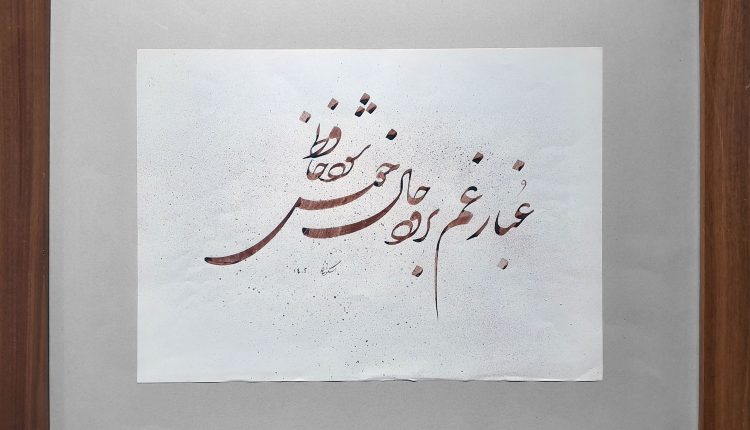 غُبار غم برود حال خوش شود حافظ